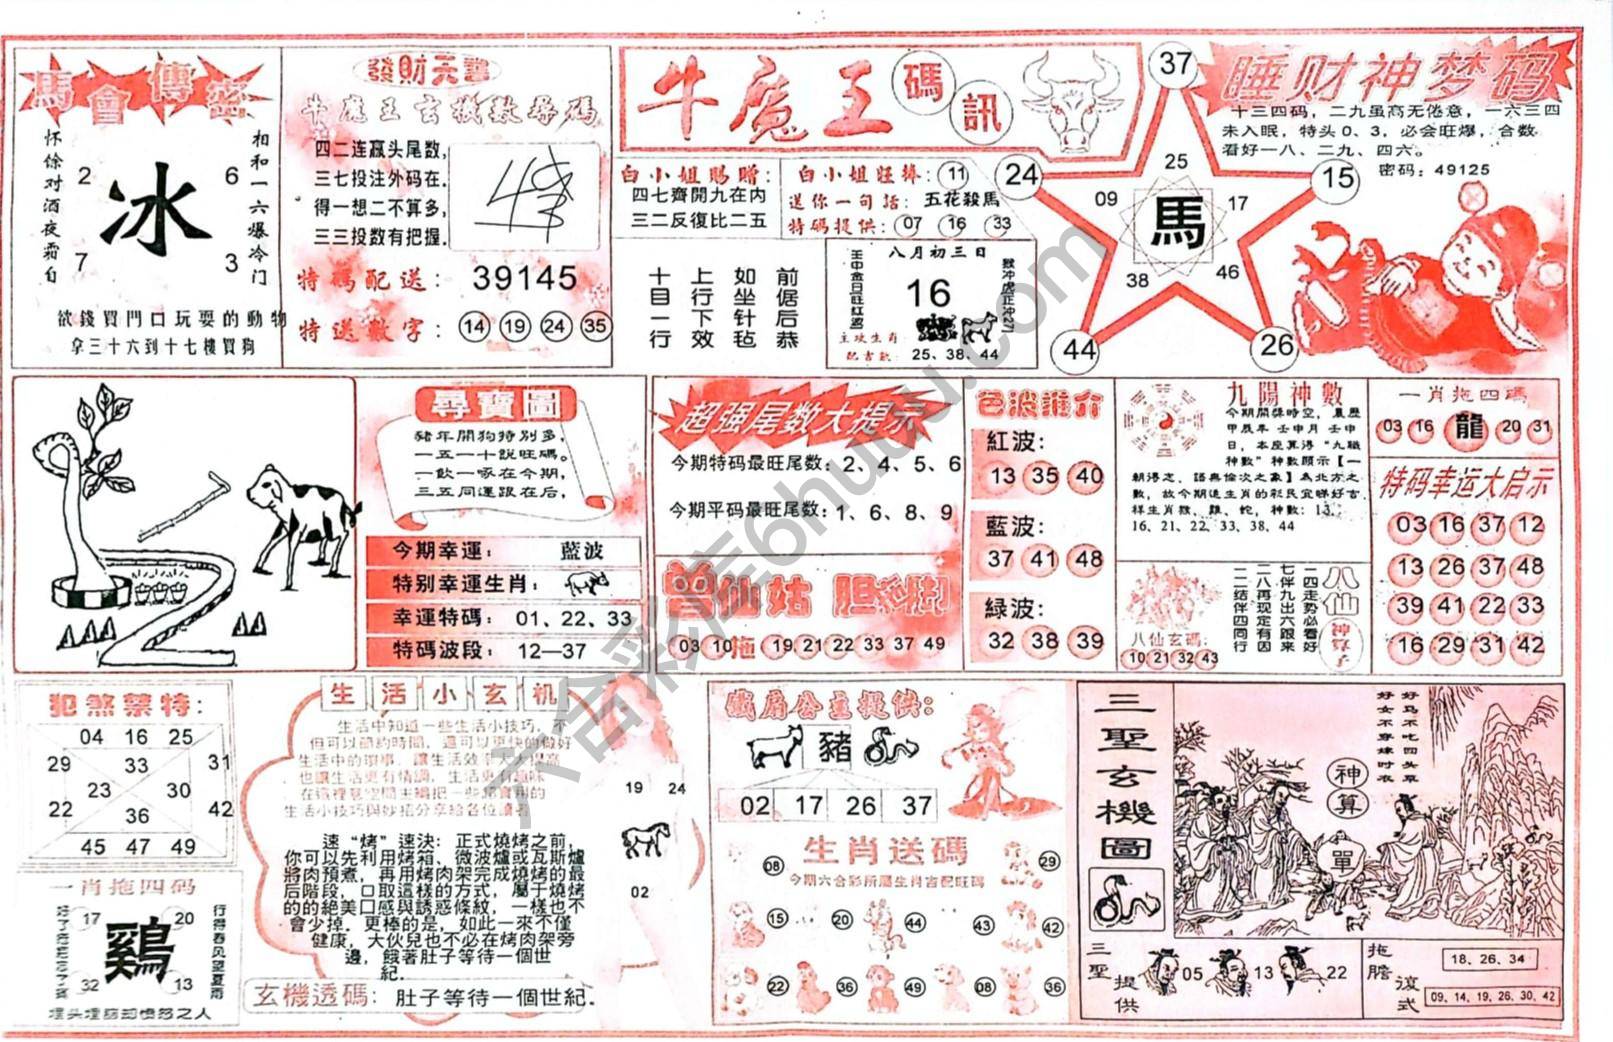 馬會傳密
相和一六爆冷门
怀馀对酒夜霜白
2
6
冰
7
3
欲錢買門口玩耍的動物
拿三十六到十七樓買狗
發财天書
牛魔王玄機數尋碼
四二连赢头尾数,
三七投注外码在.
得一想二不算多,
三三投数有把握.
特碼配送: 39145
特送數字: 14 19 24 35
牛魔王碼訊
白小姐賜贈:
四七齊開九在内
三二反復比二五
白小姐旺捧: 11
送你一句話: 五花殺馬
特碼提供: 07 16 33
前倨后恭
如坐针毡
上行下效
十目一行
八月初三日
16
主攻生肖:
配吉數: 25、38、44
37
24
15
25
09
17
馬
38
46
44
26
睡财神梦码
十三四码，二九虽高无倦意，一六三四
未入眠，特头0、3，必会旺爆，合数
看好一八、二九、四六。
密码: 49125
尋寶圖
豬年開狗特别多，
一五一十説旺碼。
一飲一啄在今期，
三五同運跟在后，
今期幸運: 藍波
特别幸運生肖:
幸運特碼: 01、22、33
特碼波段: 12—37
超强尾数大提示
今期特码最旺尾数: 2、4、5、6
今期平码最旺尾数: 1、6、8、9
曾仙姑 胆拖
03 10 拖 19 21 22 33 37 49
色波推介
紅波:
13 35 40
藍波:
37 41 48
緑波:
32 38 39
九陽神數
今期開獎時空，農歷
甲辰年 壬申月 壬申
日，本座算得“九職
神數”神數顯示【一
朝得志，語無倫次之象】為北方之
數，故今期追生肖的彩民宜睇好吉
祥生肖猴、雞、蛇，神數: 13、
16、21、22、33、38、44
八仙玄碼:
10 21 32 43
八仙神算子
一四走势必看好
七伴九出六跟来
二八再现定有因
一二结伴四同行
一肖拖四碼
03 16 龍 20 31
特码幸运大启示
03 16 37 12
13 26 37 48
39 41 22 33
16 29 31 42
犯煞禁特:
04 16 25
29
33
31
23
30
22
36
42
45 47 49
一肖拖四码
17
20
鷄
32
13
行得春风望夏雨
埋头埋脑却愤怒之人
生活小玄机
生活中知道一些生活小技巧，不
但可以節約時間，還可以更快的做好
生活中的瑣事，讓生活效率大大提高
也讓生活更有情調，生活更有趣味
在這裡慧空間主編把一些最實用的
生活小技巧與妙招分享給各位讀者
速“烤”速決: 正式燒烤之前，
你可以先利用烤箱、微波爐或瓦斯爐
將肉預煮，再用烤肉架完成燒烤的最
后階段，口取這樣的方式，屬于燒烤
的的絶美口感與誘惑條紋，一樣也不
會少掉．更棒的是，如此一來不僅
健康，大伙兒也不必在烤肉架旁
邊，餓著肚子等待一個世
紀.
玄機透碼: 肚子等待一個世紀.
19 24
02
鐵扇公主提供:
豬
02 17 26 37
生肖送碼
今期六合彩所屬生肖吉配旺碼
08
29
15
20
44
43
42
22
36
49
08
36
三聖玄機圖
好马不吃四头草
好女不穿嫁时衣
神算
單
三聖提供
05
13
22
拖膽復式
18、26、34
09、14、19、26、30、42
六合彩库6huuu.com